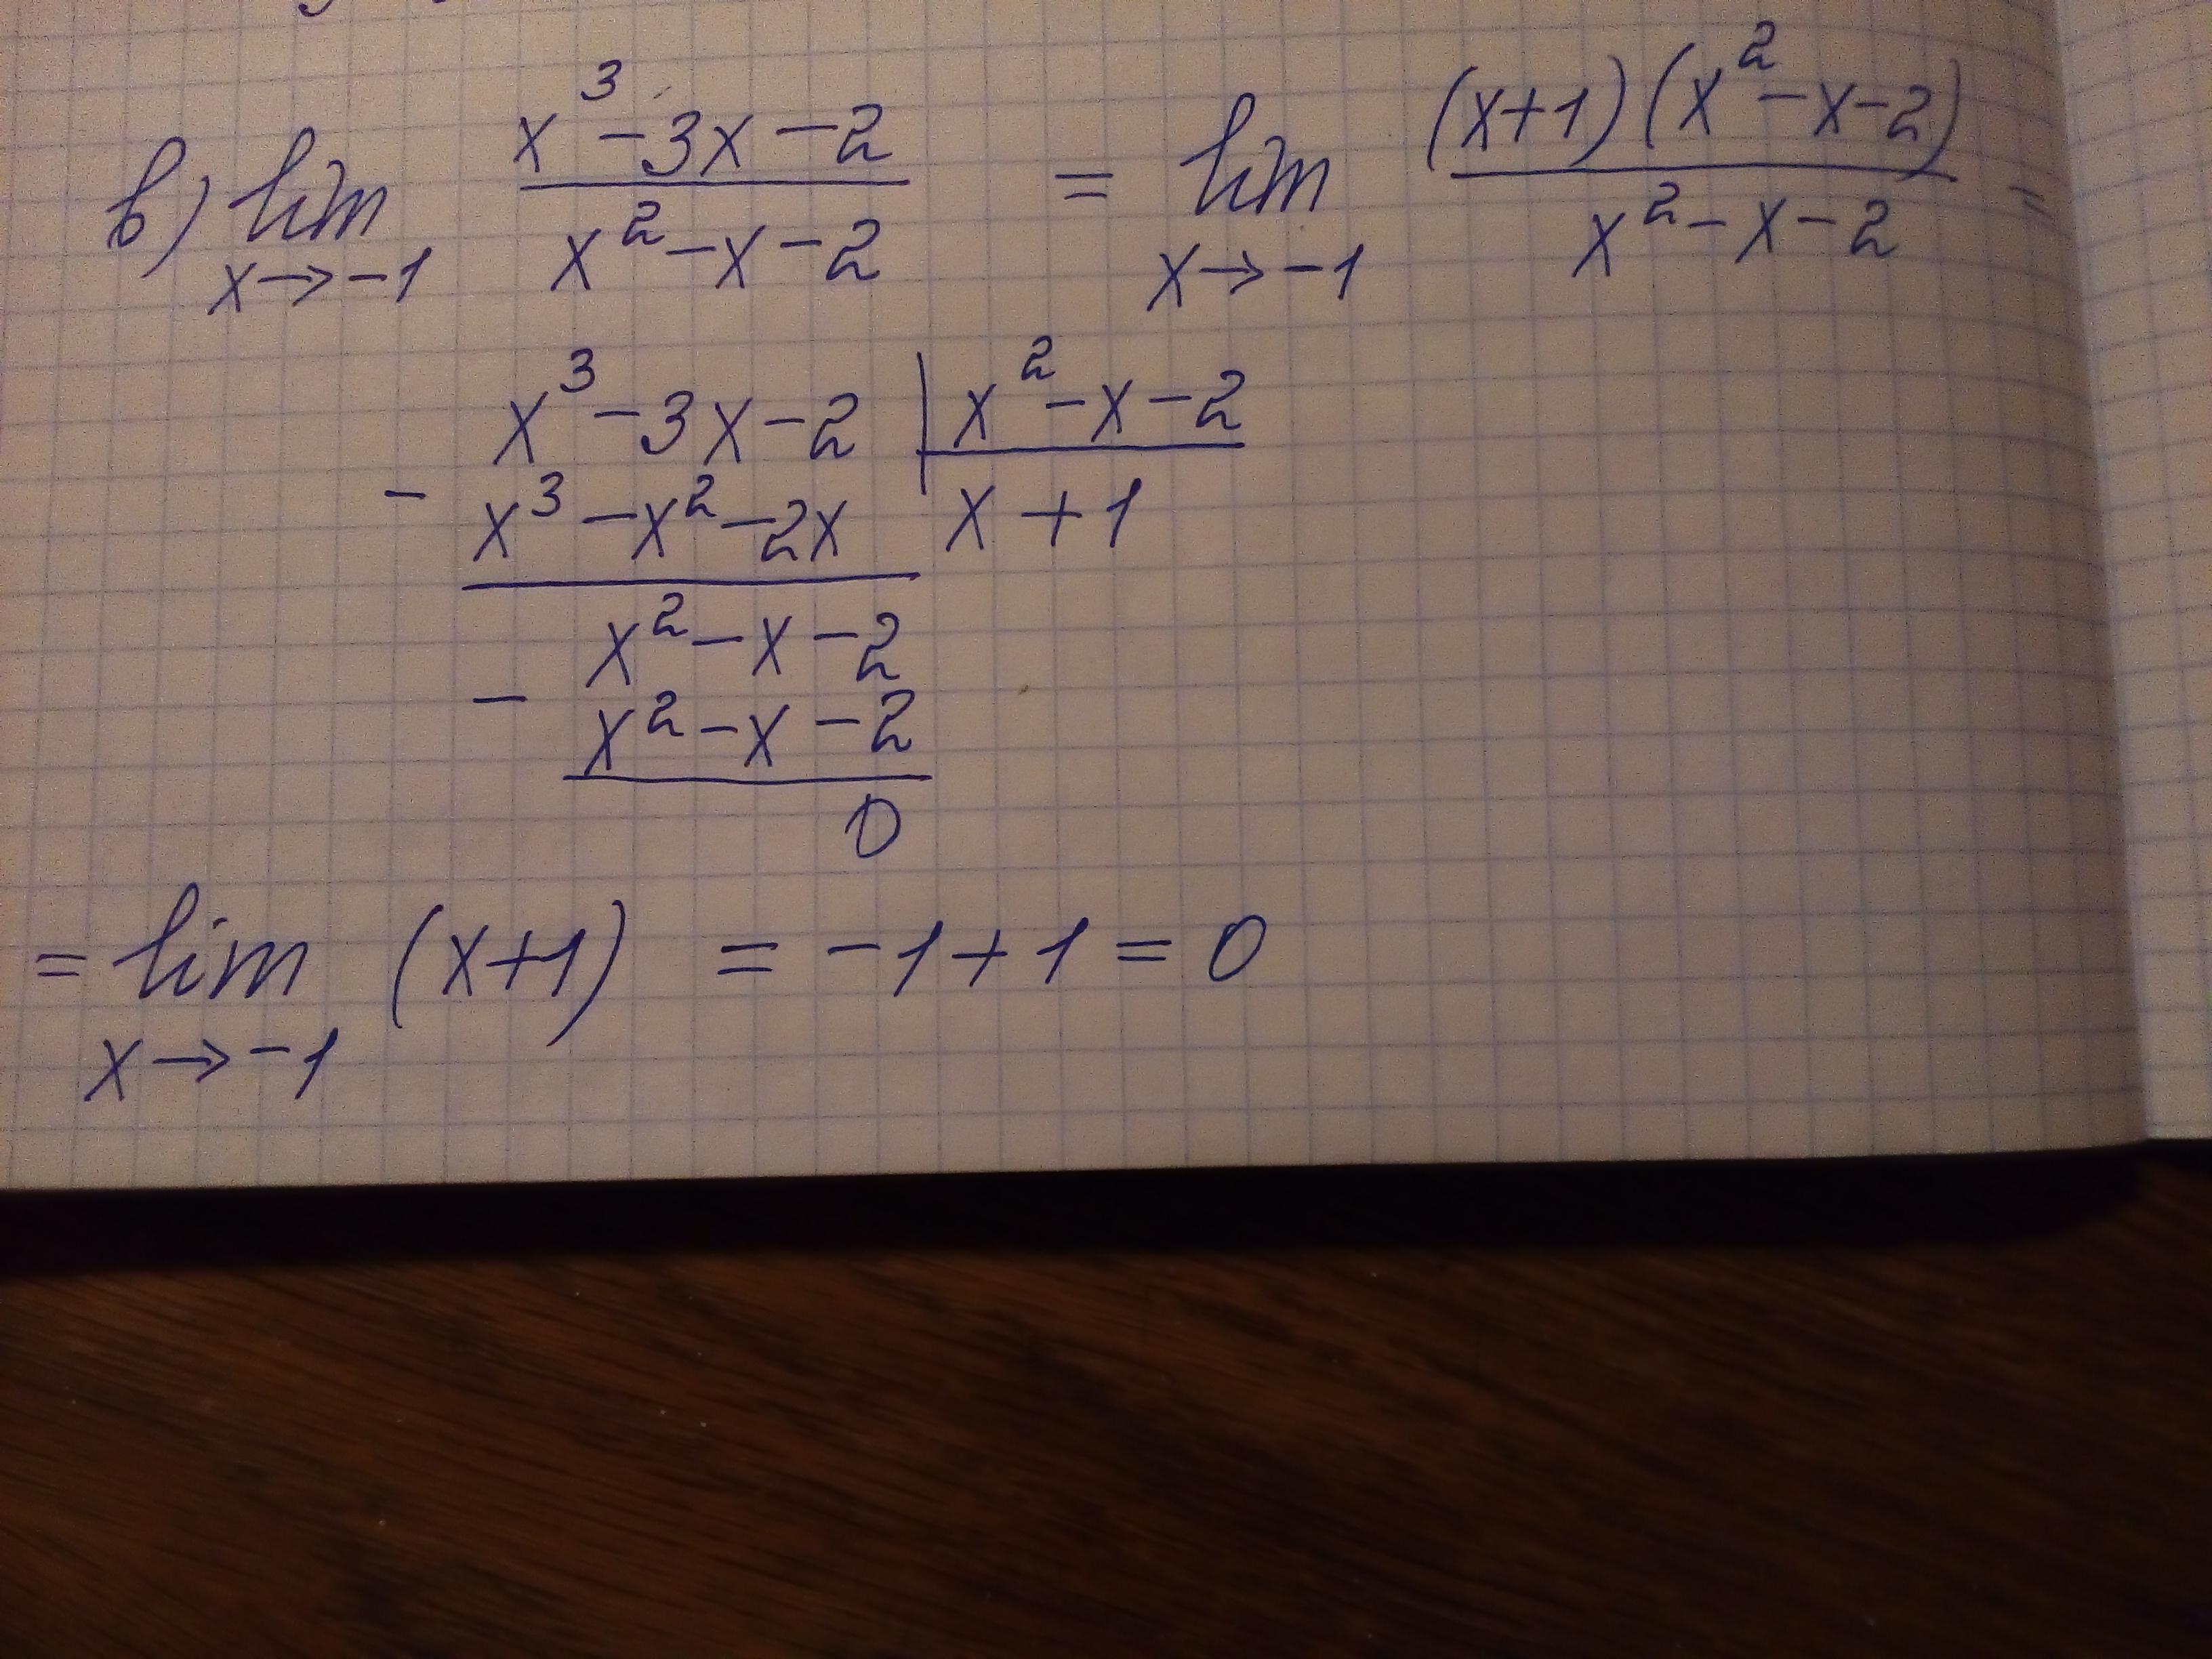 в) lim x→-1 (x³-3x-2)/(x²-x-2) = lim x→-1 ((x+1)(x²-x-2))/(x²-x-2) =
x³-3x-2 | x²-x-2
- x³-x²-2x | x+1
x²-x-2
- x²-x-2
0
= lim x→-1 (x+1) = -1+1=0